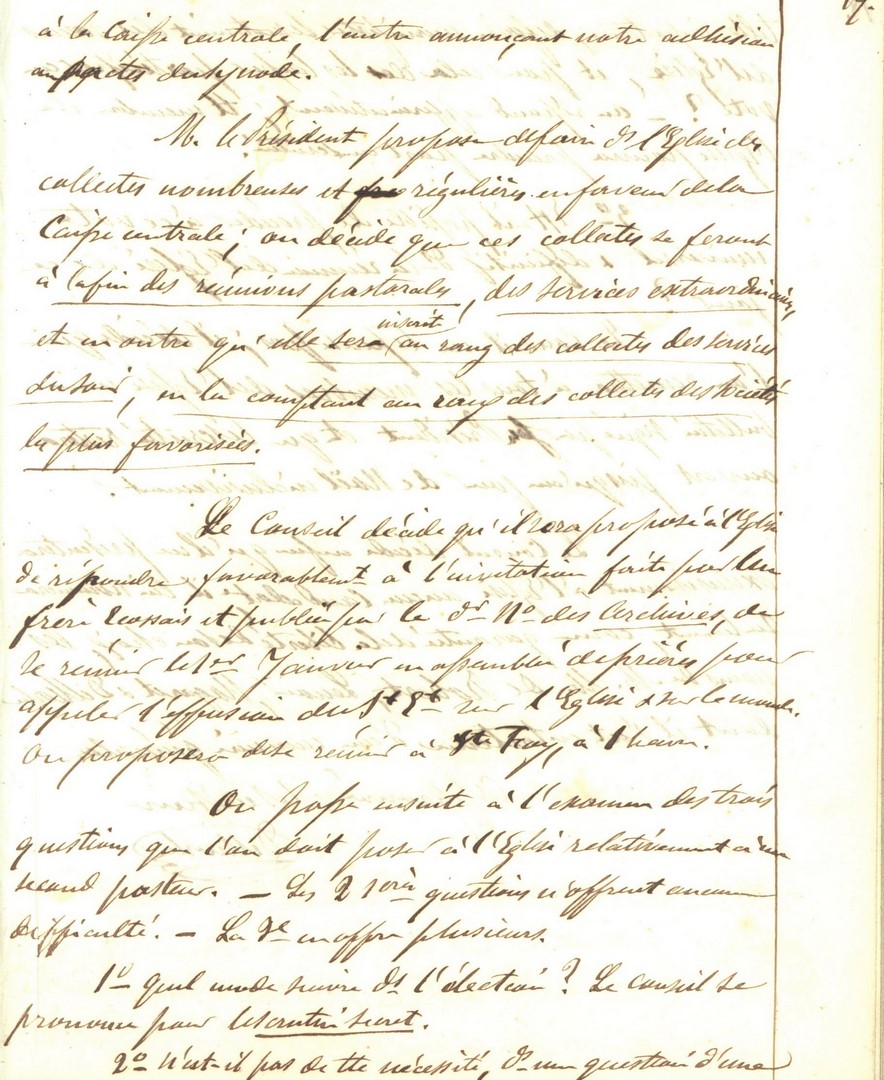 17.
à la Caisse centrale, l'autre annonçant notre adhésion
aux actes du synode.
M. le Président propose de faire ds l'Eglise des
collectes nombreuses et régulières en faveur de la
Caisse centrale; on décide que ces collectes se feront
à la fin des réunions pastorales, des services extraordinaires,
et en outre qu'elle sera inscrite au rang des collectes des services
du soir, en la comptant au rang des collectes des sociétés
les plus favorisées.
Le Conseil décide qu'il sera proposé à l'Eglise
de répondre favorablement à l'invitation faite par un
frère Ecossais et publiée par le dr No des Archives, de
se réunir le 1er Janvier en assemblée de prières pour
appeler l'effusion du St Et sur l'Eglise & sur le monde.
On proposera de se réunir à Ste Foy, à 1 heure.
On passe ensuite à l'examen des trois
questions que l'on doit poser à l'Eglise relativement à un
second pasteur. — Les 2 1ères questions n'offrent aucune
difficulté. — La 3e en offre plusieurs.
1o quel mode suivre ds l'élection? Le Conseil se
prononce pour le scrutin secret.
2o N'est-il pas de tte nécessité, ds une question d'une